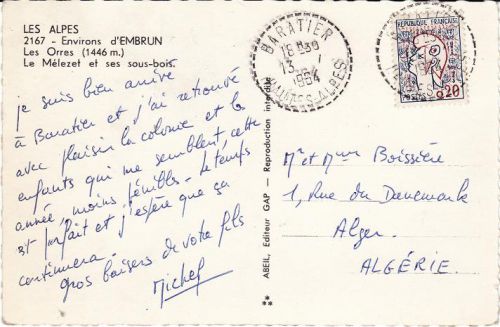 LES ALPES
2167 - Environs d'EMBRUN
Les Orres (1446 m.)
Le Mélezet et ses sous-bois.
je suis bien arrivé
à Baratier et j'ai retrouvé
avec plaisir la colonie et les
enfants qui me semblent, cette
année, moins pénibles - le temps
est parfait et j'espère que ça
continuera -
gros baisers de votre fils
Michel
ABEIL, Editeur GAP - Reproduction interdite
BARATIER
18 H30
13 - 1
1964
HAUTES-ALPES
REPUBLIQUE FRANÇAISE
0,20
POSTES
Mr et Mme Boissière
1, Rue du Danemark
Alger.
ALGÉRIE.